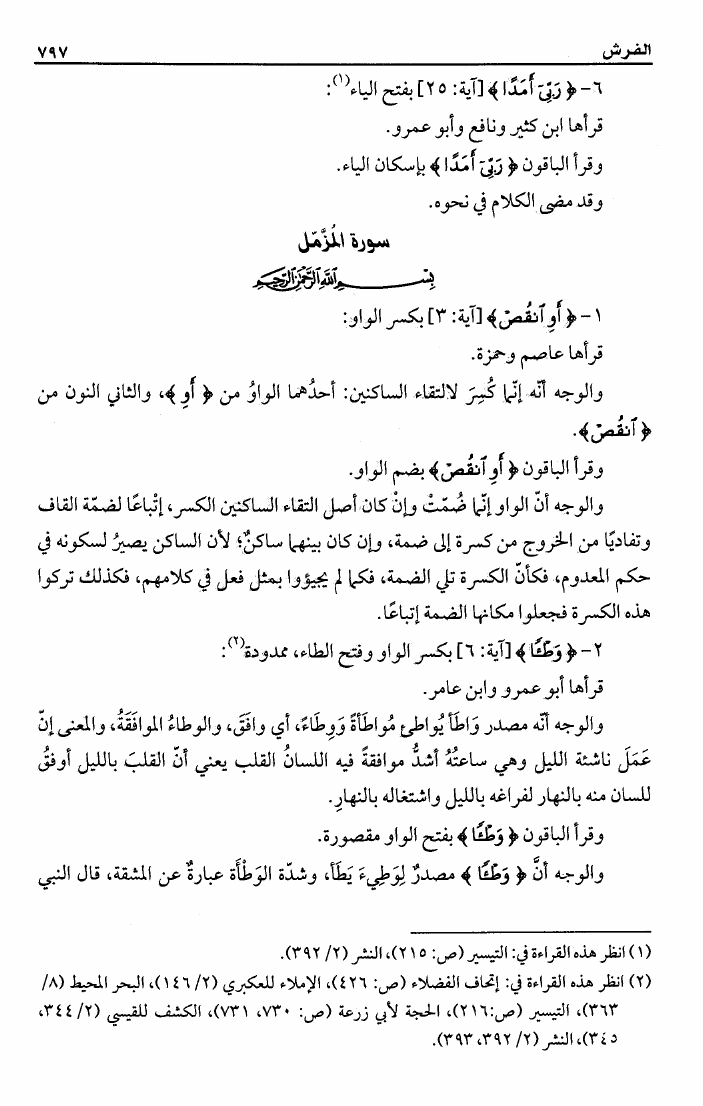 الفرش ٧٩٧
٦- ﴿ رَبِّىٓ أَمَدًا ﴾ [آية: ٢٥] بفتح الياء(١):
قرأها ابن كثير ونافع وأبو عمرو.
وقرأ الباقون ﴿ رَبِّىٓ أَمَدًا ﴾ بإسكان الياء.
وقد مضى الكلام في نحوه.
سورة المُزَّمّل
بِسْمِ اللَّهِ الرَّحْمَٰنِ الرَّحِيمِ
١- ﴿ أَوِ ٱنقُصْ﴾ [آية: ٣] بكسر الواو:
قرأها عاصم وحمزة.
والوجه أنّه إنّما كُسِرَ لالتقاء الساكنين: أحدُهما الواوُ من ﴿ أَوِ ﴾، والثاني النون من
﴿ ٱنقُصْ﴾.
وقرأ الباقون ﴿ أَوِ ٱنقُصْ﴾ بضم الواو.
والوجه أنّ الواو إنّما ضُمّتْ وإنْ كان أصل التقاء الساكنين الكسر، إتْباعًا لضمّة القاف
وتفاديًا من الخروج من كسرة إلى ضمة، وإن كان بينهما ساكنٌ؛ لأن الساكن يصيرُ لسكونه في
حكم المعدوم، فكأنّ الكسرة تلي الضمة، فكما لم يجيؤوا بمثل فعل في كلامهم، فكذلك تركوا
هذه الكسرة فجعلوا مكانها الضمة إتباعًا.
٢- ﴿ وَطْـًٔا ﴾ [آية: ٦] بكسر الواو وفتح الطاء، ممدودة(٢):
قرأها أبو عمرو وابن عامر.
والوجه أنّه مصدر وَاطَأَ يُواطئ مُواطَأةً وَوِطَاءً، أي وافَقَ، والوطاءُ الموافَقَةُ، والمعنى إنّ
عَمَلَ ناشئة الليل وهي ساعتُهُ أشدُّ موافقةً فيه اللسانُ القلب يعني أنّ القلبَ بالليل أوفقُ
للسان منه بالنهار لفراغه بالليل واشتغاله بالنهارِ.
وقرأ الباقون ﴿ وَطْـًٔا ﴾ بفتح الواو مقصورة.
والوجه أنَّ ﴿ وَطْـًٔا ﴾ مصدرٌ لِوَطِيءَ يَطَأ، وشدّة الوَطْأَة عبارةٌ عن المشقة، قال النبي
(١) انظر هذه القراءة في: التيسير (ص: ٢١٥)، النشر (٢/ ٣٩٢).
(٢) انظر هذه القراءة في: إتحاف الفضلاء (ص: ٤٢٦)، الإملاء للعكبري (٢/ ١٤٦)، البحر المحيط (٨/
٣٦٣)، التيسير (ص:٢١٦)، الحجة لأبي زرعة (ص: ٧٣٠، ٧٣١)، الكشف للقيسي (٢/ ٣٤٤،
٣٤٥)، النشر (٢/ ٣٩٢، ٣٩٣).